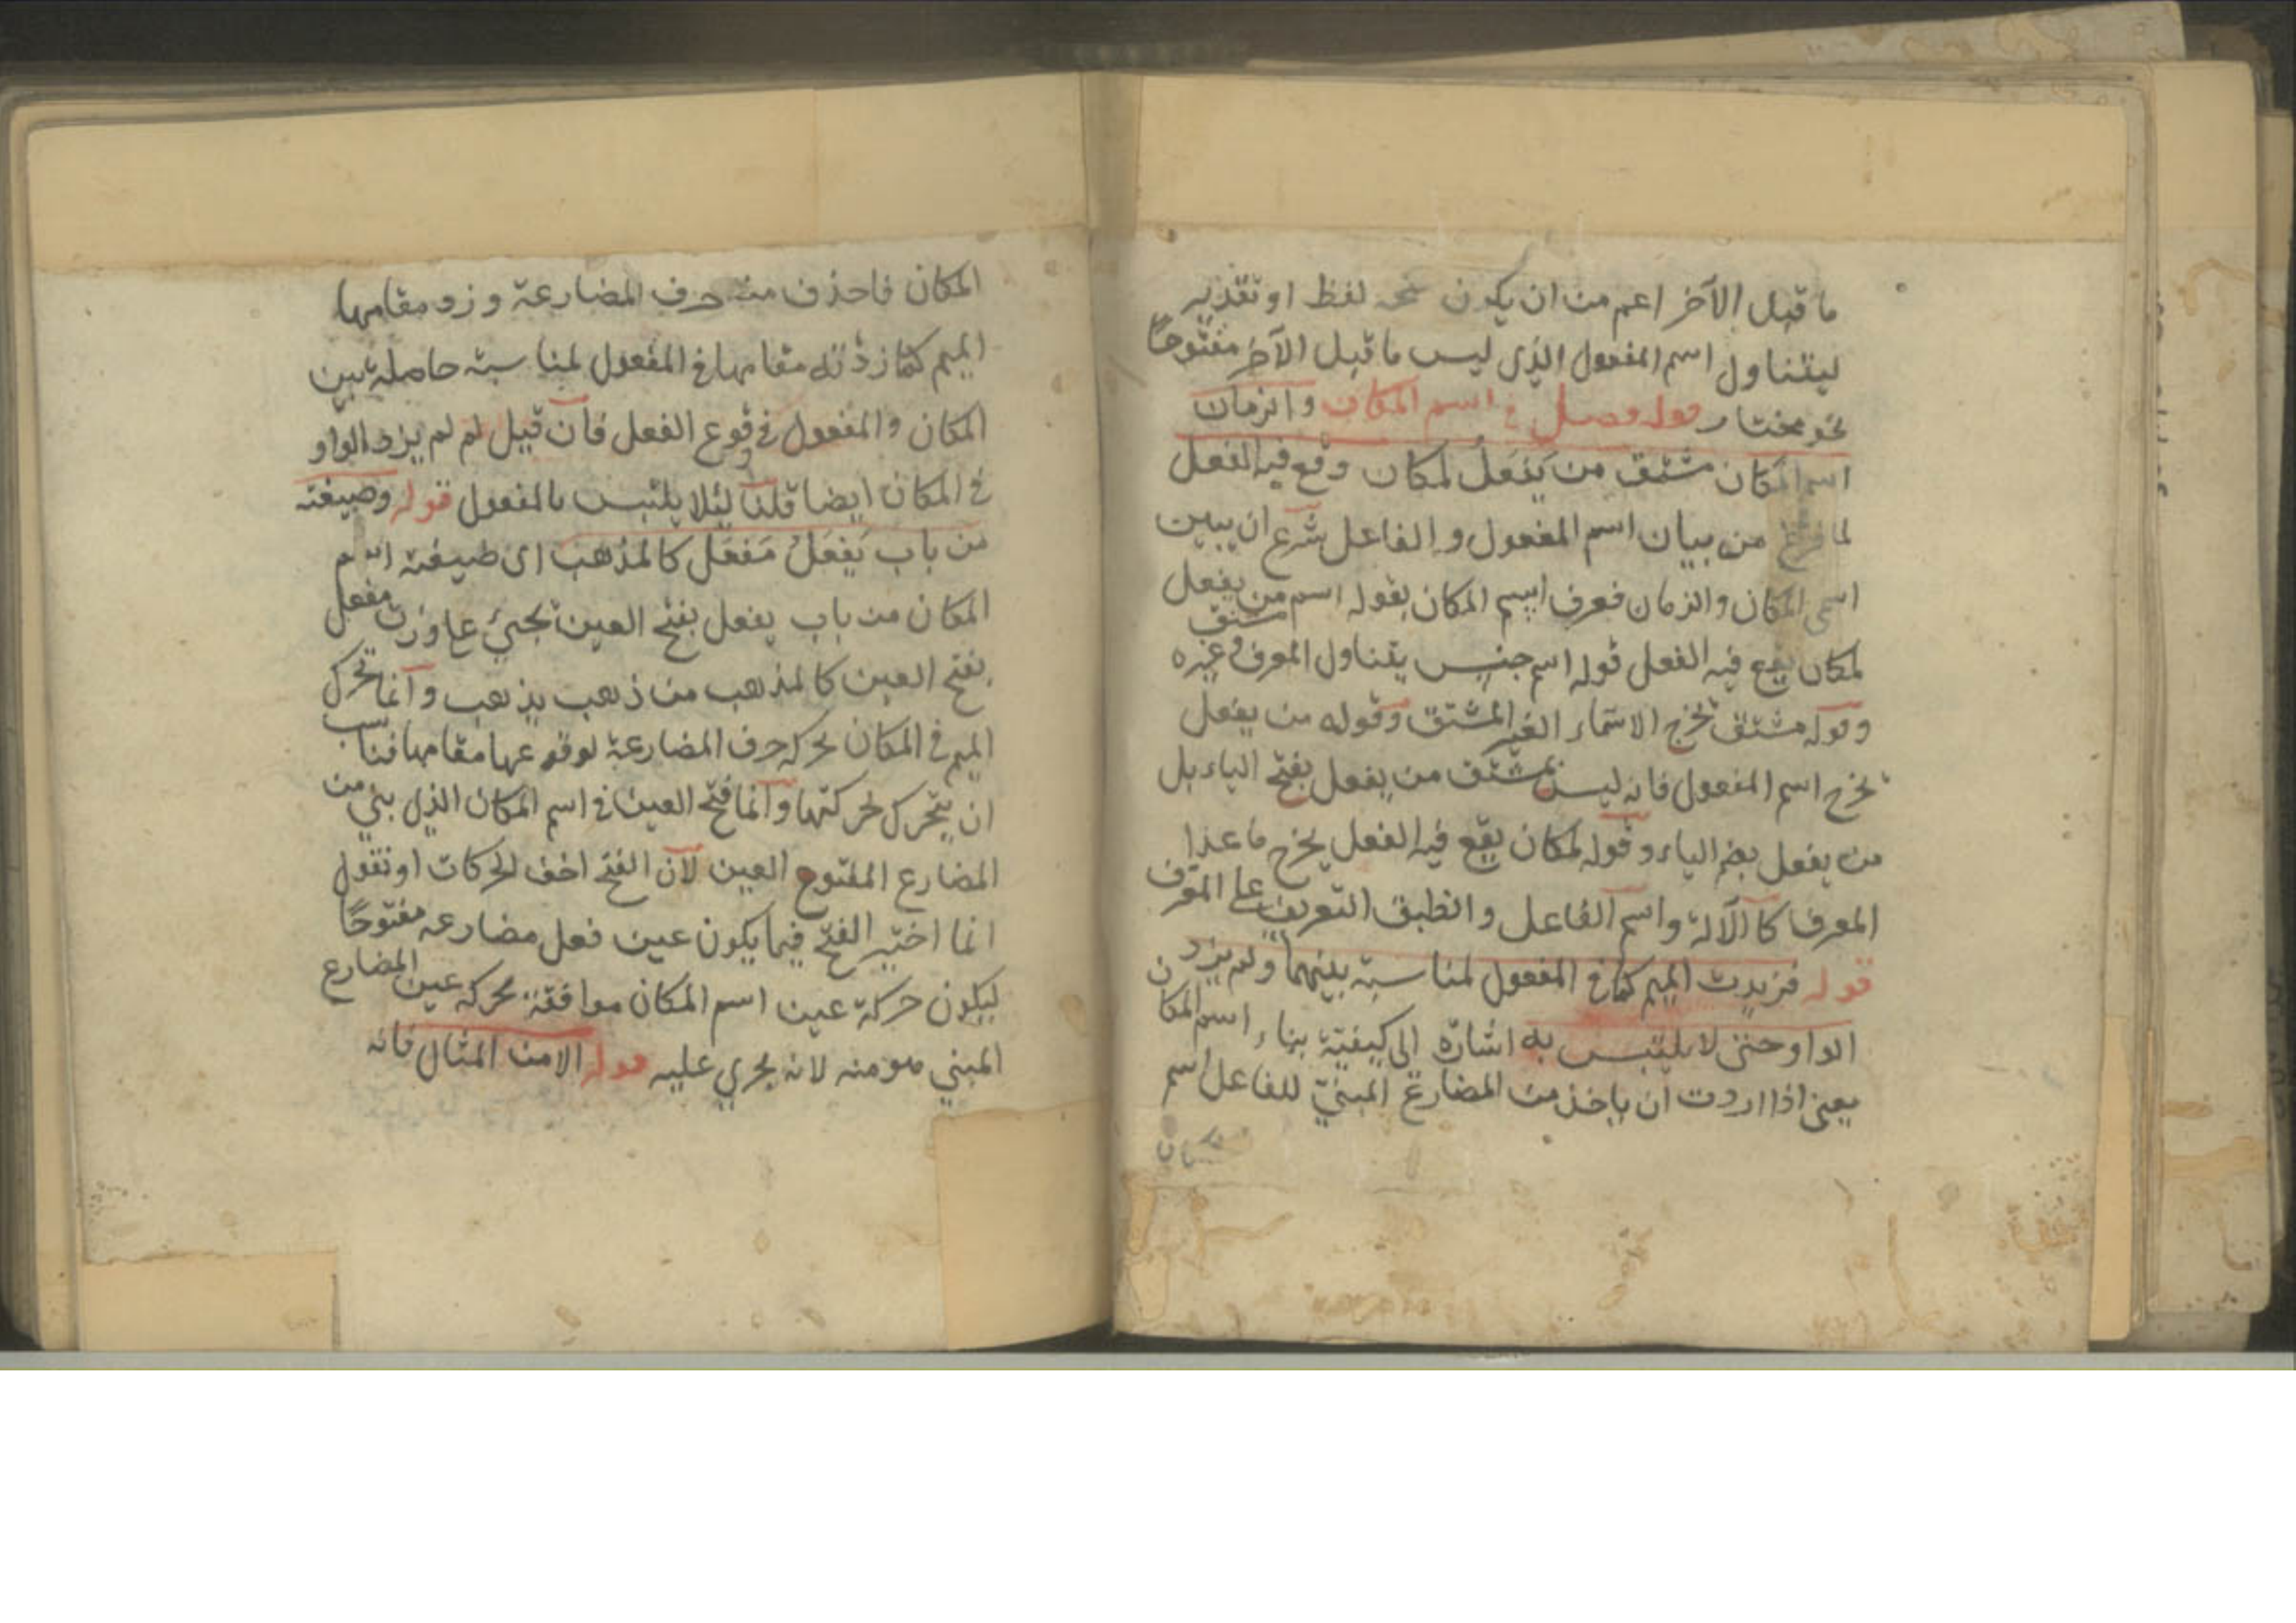 ما قبل الآخر اعم من ان يكون لفظ او تقدير
ليتناول اسم المفعول الذي ليس ما قبل الآخر مفتوحا
نحو مختار قوله فصل في اسم المكان والزمان
اسم المكان مشتق من يَفعَلُ لمكان وقع فيه الفعل
لما فرغ من بيان اسم المفعول والفاعل شرع ان يبين
اسمى المكان والزمان فعرف اسم المكان بقوله اسم مشتق من يفعل
لمكان يقع فيه الفعل قوله اسم جنس يتناول المعرف وغيره
وقوله مشتق تخرج الاسماء الغير المشتق وقوله من يفعل
تخرج اسم المفعول فانه ليس بمشتق من يفعل بفتح الياء بل
من يفعل بضم الياء وقوله لمكان يقع فيه الفعل يخرج ما عدا
المعرف كالآلة واسم الفاعل وانطبق التعريف على المعرف
قوله فزيدت الميم كما في المفعول لمناسبة بينهما ولم يزد
الواو حتى لا يلتبس به اشارة الى كيفية بناء اسم المكان
يعنى اذا اردت ان ياخذ من المضارع المبنيّ للفاعل اسم
المكان فاحذف منه حرف المضارعة وزد مقامها
الميم كما زدته مقامها في المفعول لمناسبة حاصلة بين
المكان والمفعول في وقوع الفعل فان قيل لم لم يزد الواو
في المكان ايضا قلنا لئلا يلتبس بالمفعول قوله وصيغته
من باب يَفعَلُ مَفعَل كالمذهب اى صيغة اسم
المكان من باب يفعل بفتح العين تجيئ على وزن مفعل
بفتح العين كالمذهب من ذهب يذهب وانما تحرك
الميم في المكان بحركة حرف المضارعة لوقوعها مقامها فناسب
ان يتحرك لحركتها وانما فتح العين في اسم المكان الذي بني من
المضارع المفتوح العين لان الفتح اخف الحركات او نقول
انما اختير الفتح فيما يكون عين فعل مضارعه مفتوحًا
ليكون حركة عين اسم المكان موافقة بحركة عين المضارع
المبني هو منه لانه يجري عليه قوله الا من المثال فانه